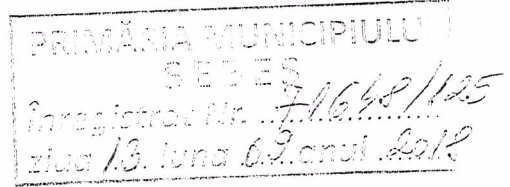 PRIMĂRIA MUNICIPIULUI
SEBEȘ
Înregistrat Nr. 71648/125
ziua 13 luna 09 anul 2018